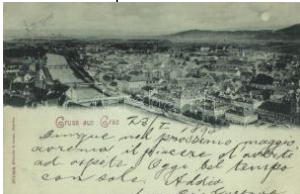 Gruss aus Graz
23/I 1898
Dunque nel prossimo maggio
avremo il piacere di averti
ad ospite. Oggi bel tempo
con sole. Addio